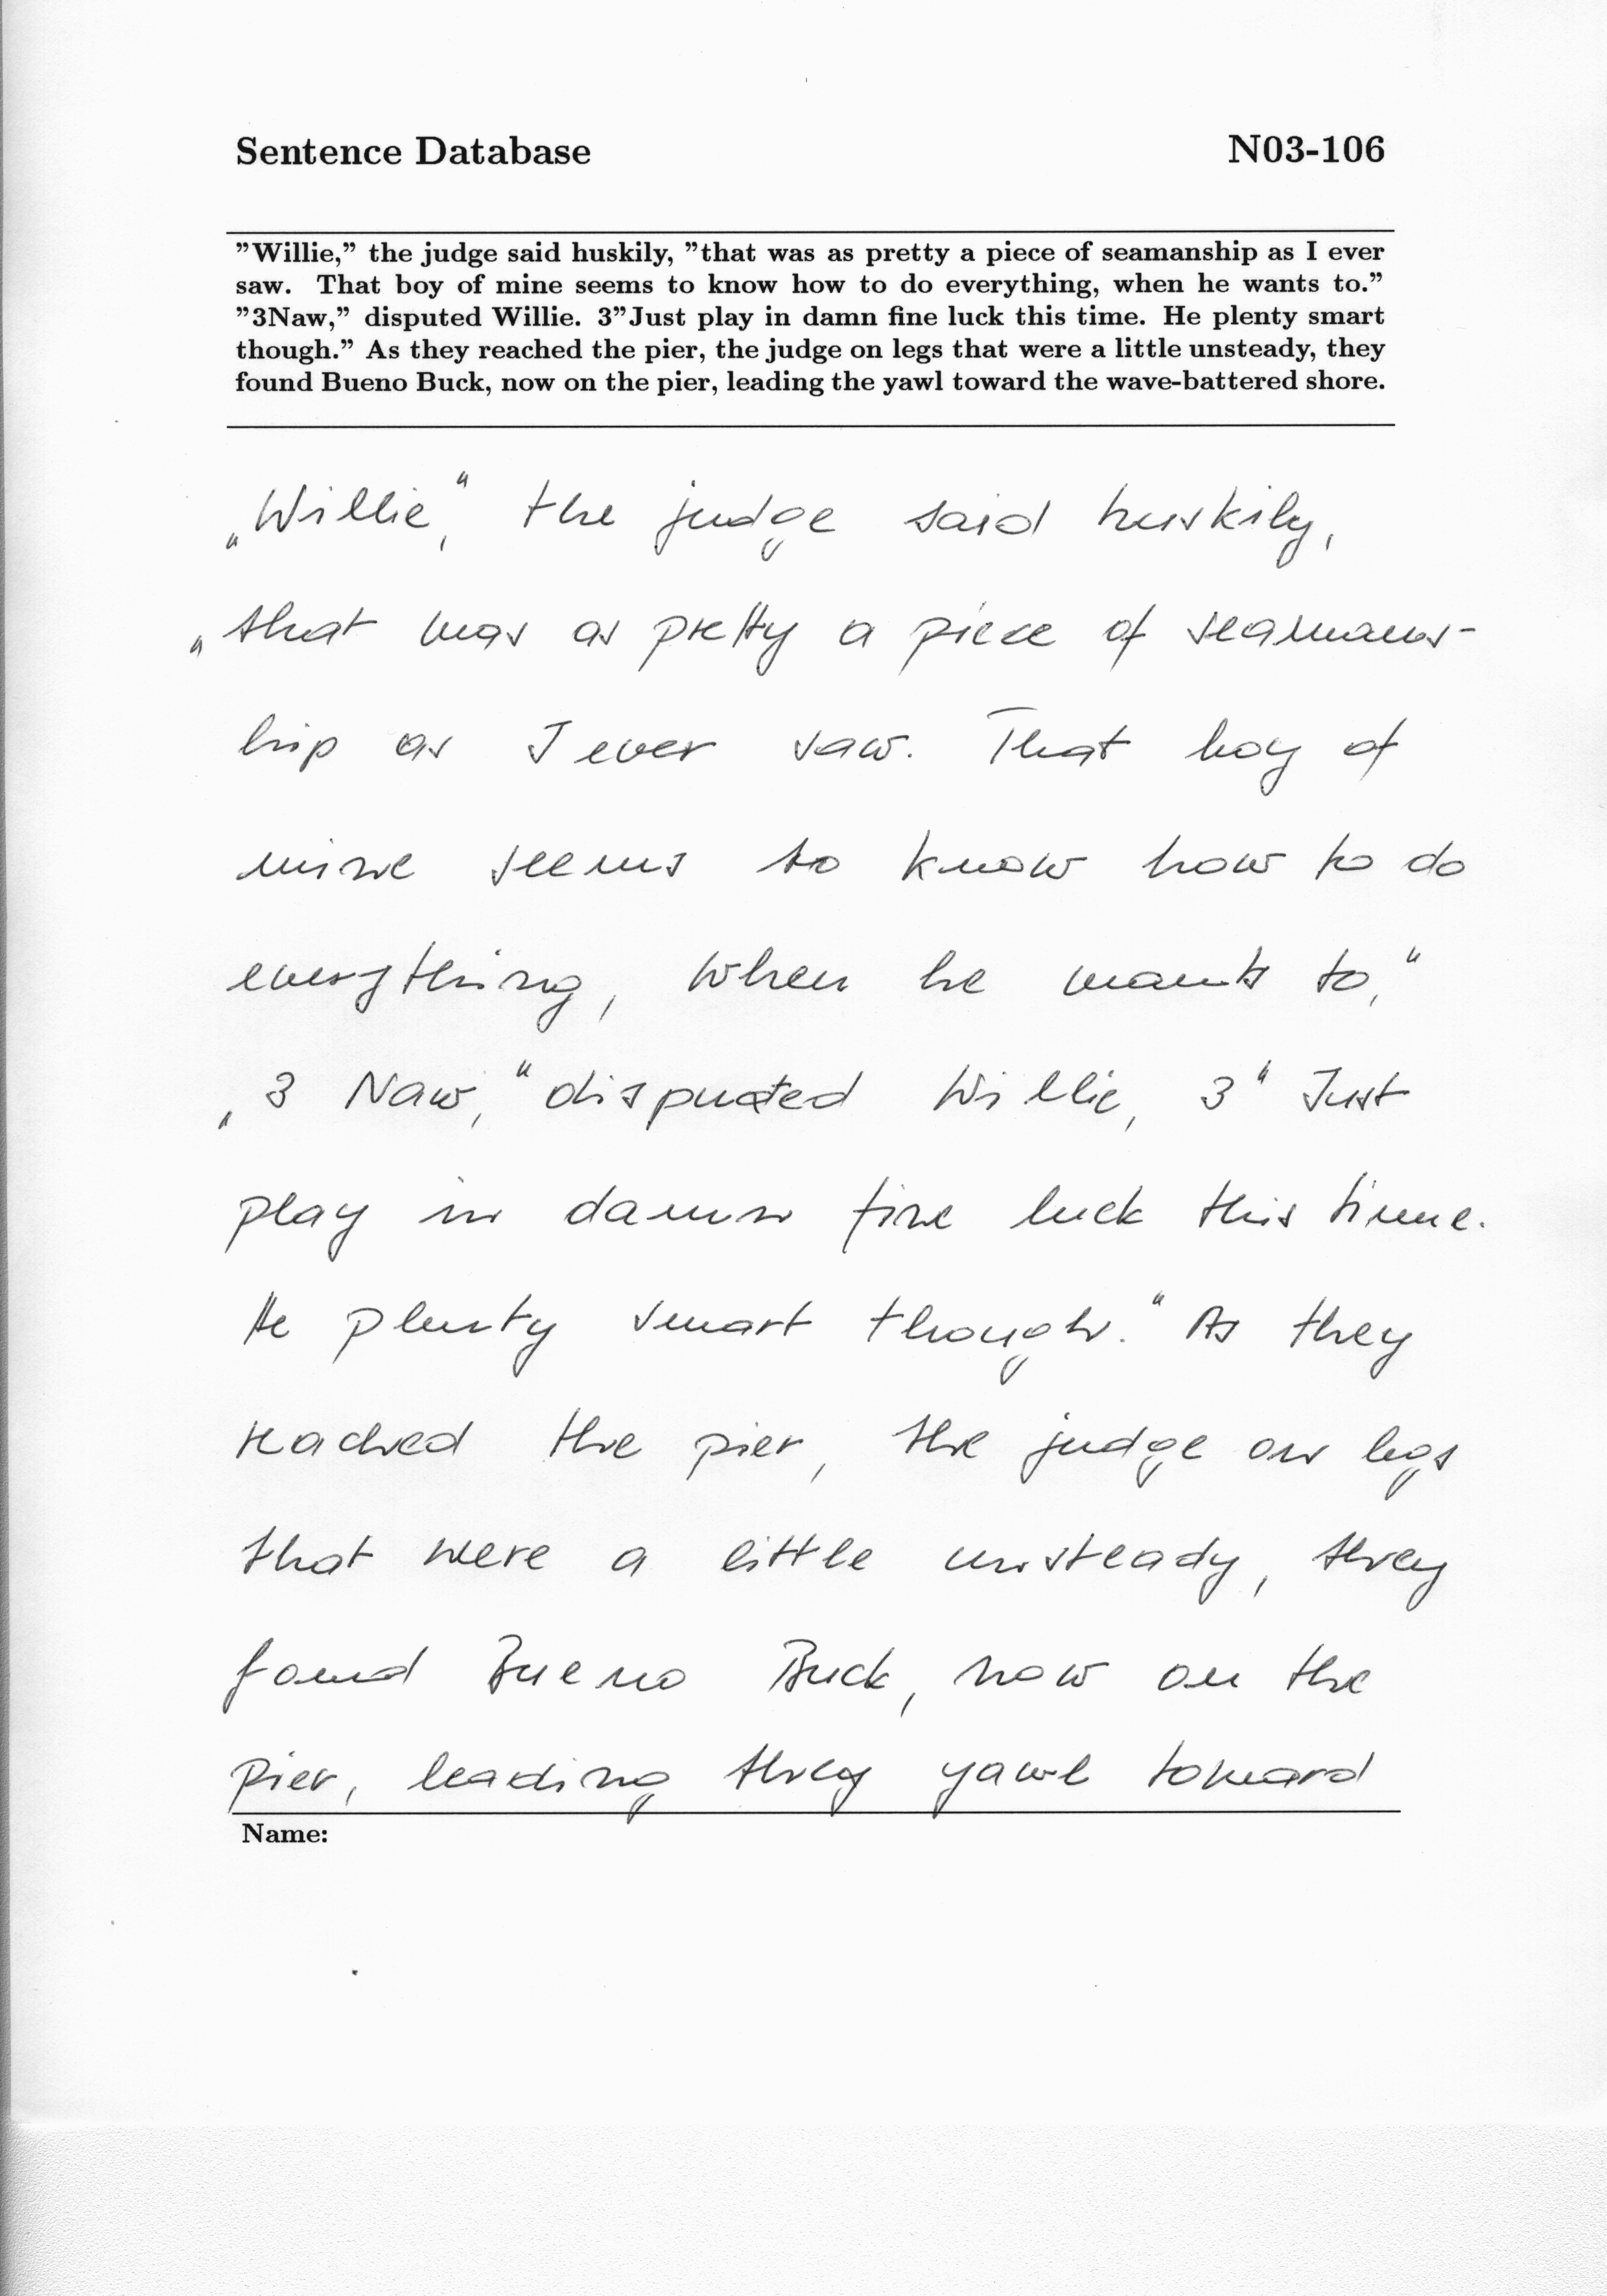 Sentence Database N03-106
”Willie,” the judge said huskily, ”that was as pretty a piece of seamanship as I ever
saw. That boy of mine seems to know how to do everything, when he wants to.”
”3Naw,” disputed Willie. 3”Just play in damn fine luck this time. He plenty smart
though.” As they reached the pier, the judge on legs that were a little unsteady, they
found Bueno Buck, now on the pier, leading the yawl toward the wave-battered shore.
„Willie,“ the judge said huskily,
„that was as pretty a piece of seamans-
hip as I ever saw. That boy of
mine seems to know how to do
everything, when he wants to,“
„3 Naw,“ disputed Willie, 3“ Just
play in damn fine luck this time.
He plenty smart though.“ As they
reached the pier, the judge on legs
that were a little unsteady, they
found Bueno Buck, now on the
pier, leading they yawl toward
Name: